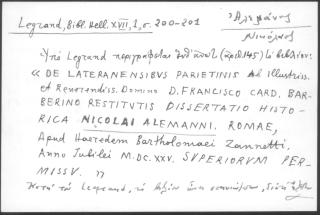 Legrand, Bibl. Hell. XVII, 1, σ. 200-201
Ἀλεμάνος
Νικόλαος
Ὑπὸ Legrand περιγράφεται (ἀριθ. 145) τὸ βιβλίον:
« DE LATERANENSIBVS PARIETINIS Ad Illustriss.
et Reverendiss. Domino D. FRANCISCO CARD. BAR-
BERINO RESTITVTIS DISSERTATIO HISTO-
RICA NICOLAI ALEMANNI. ROMAE,
Apud Haeredem Bartholomaei Zannetti,
Anno Iubilei M.DC.XXV. SVPERIORVM PER-
MISSV. »
Κατὰ τὸν Legrand, τὸ